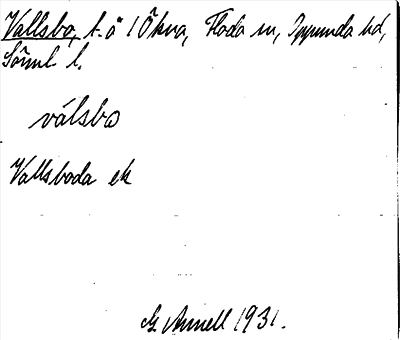 Vallsbo, t. å 1 Ökna, Floda sn, Oppunda hd,
Söml l.
válsbo
Vallsboda ek
G. Annell 1931.